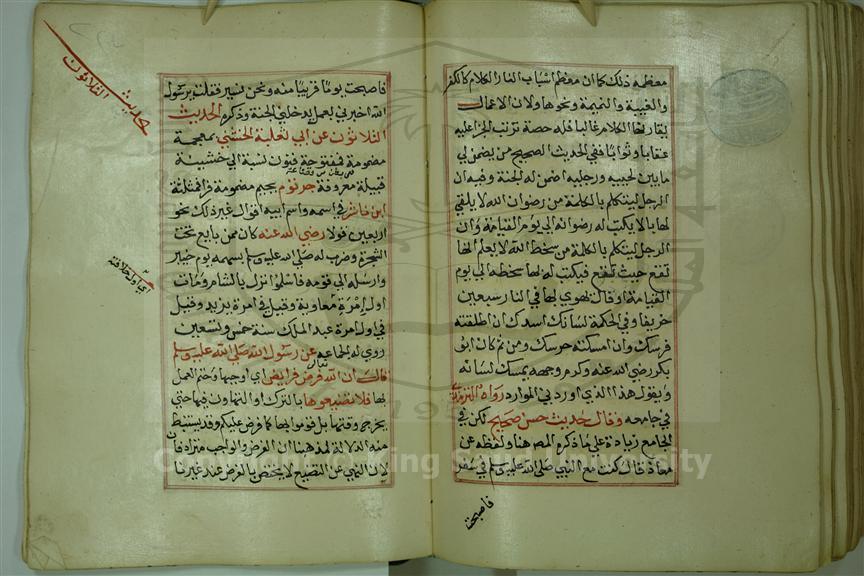 معظمه ذلك كما ان معظم اسباب النار الكلام كالكفر
والغيبة والنميمة ونحوها ولان الاعمال
يقارنها الكلام غالبا فله حصة ترتب الجزا عليه
عقابا وثوابا ففي الحديث الصحيح من يضمن لي
ما بين لحييه ورجليه اضمن له الجنة وفيه ان
الرجل ليتكلم بالكلمة من رضوان الله لا يلقي
لها بالا يكتب له رضوانه الى يوم القيامة وان
الرجل ليتكلم بالكلمة من سخط الله لا يعلم انها
تقع حيث تقع فيكتب له بها سخطه الى يوم
القيامة او قال يهوي بها في النار سبعين
خريفا وفي الحكمة لسانك اسدك ان اطلقته
فرسك وان امسكته حرسك ومن ثم كان ابو
بكر رضي الله عنه وكرم وجهه يمسك لسانه
ويقول هذا الذي اوردني الموارد رواه الترمذي
في جامعه وقال حديث حسن صحيح لكن في
الجامع زيادة على ما ذكره المص هنا ولفظه عن
معاذ قال كنت مع النبي صلى الله عليه وسلم في سفر
فاصبحت
فاصبحت يوما قريبا منه ونحن نسير فقلت يرسول
الله اخبرني بعمل يدخلني الجنة وذكره الحديث
الثلاثون عن ابي ثعلبة الخشني بمعجمة
مضمومة فمفتوحة فنون نسبة الى خشينة
قبيلة معروفة جرثوم بجيم مضمومة فرا فمثلثة
ابن ناشر في اسمه واسم ابيه اقوال غير ذلك نحو
اربعين قولا رضي الله عنه كان ممن بايع تحت
الشجرة وضرب له صلى الله عليه وسلم بسهمه يوم خيبر
وارسله الى قومه فاسلموا نزل بالشام ومات
اول امرة معاوية وقيل في امرة يزيد وقيل
في اول امرة عبد الملك سنة خمس وتسعين
روي له الجماعة عن رسول الله صلى الله عليه وسلم
قال ان الله فرض فرايض اي اوجبها وحتم العمل
بها فلا تضيعوها بالترك او التهاون فيها حتى
يخرج وقتها بل قوموا بها كما فرض عليكم وقد يستنبط
منه الدلالة لمذهبنا ان الفرض والواجب مترادفان
لان النهي عن التضييع لا يختص بالفرض عند غيرنا
حديث الثلاثون
اي اول خلافته
Copyright © King Saud University
1957